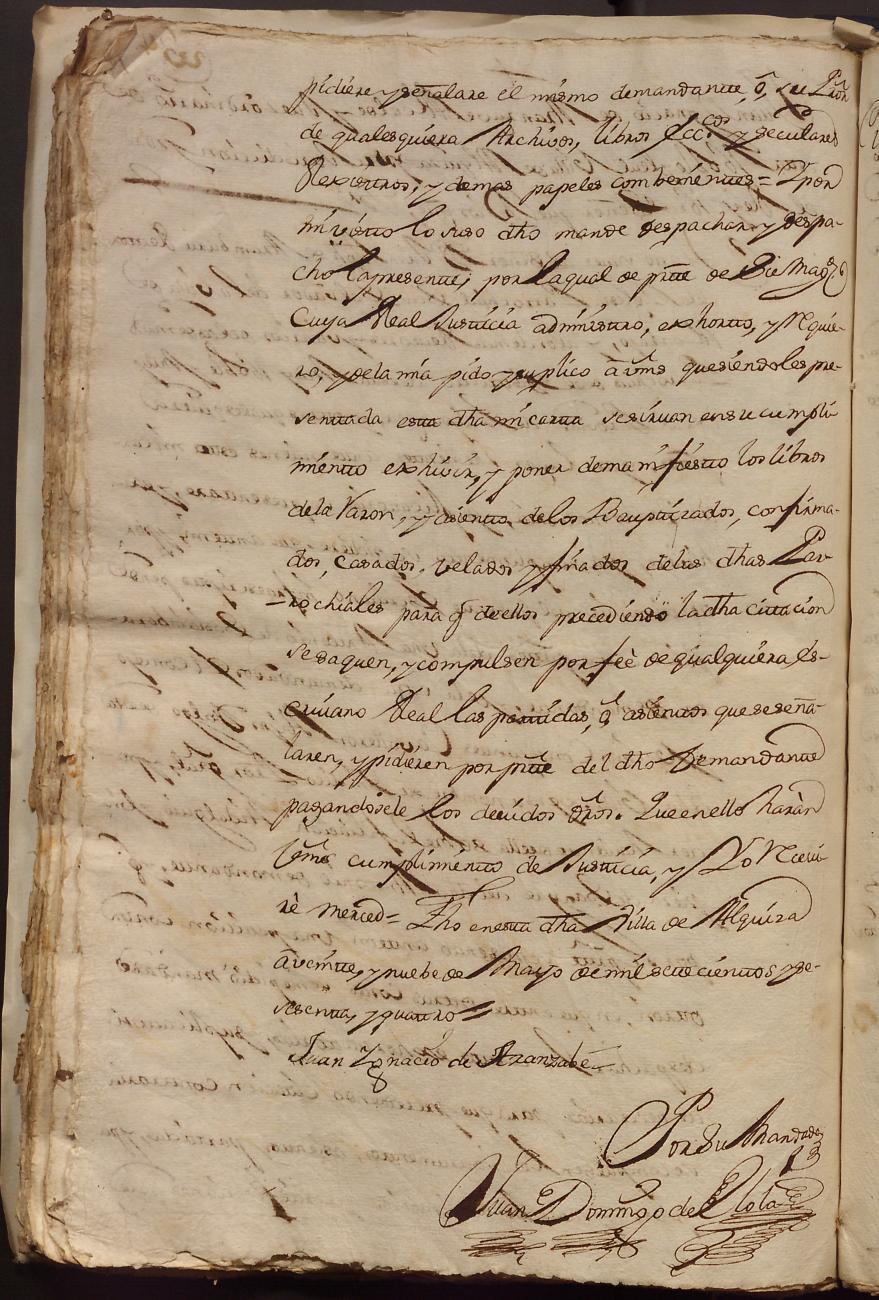 pidiere y señalare el mismo demandante, ó, su Pror
de qualesquiera Archivos, libros Eccos y seculares
Rexistros, y demas papeles combenientes = Y por
mi visto lo suso dho mande despachar y despa-
cho la presente, por la qual de pte de Sie Magd
Cuya Real Justicia administro, exhorto, y Requie-
ro, y de la mia pido y suplico à vms que siendoles pre-
sentada esta dha mi carta se sirvan en su cumpli-
miento exhivir, y poner de manifiesto los libros
de la Razon, y asiento de los Bauptizados, confirma-
dos, casados, velados y finados de las dhas Par-
rochiales para q de ellos precediendo la dha citacion
se saquen, y compulsen por feè de qualquiera Es-
crivano Real las partidas, ó asientos que se seña-
laren, y pidieren por pte del dho Demandante
pagandosele los devidos dros. Que en ello haràn
Vms cumplimiento de Justicia, y Yo Recivi-
rè merced = Fho en esta dha Villa de Alquiza
a veinte, y nuebe de Mayo de mil setecientos y se-
sesenta, y quattro =
Juan Ignacio de Aranzabe
Por su Mandado
Juan Domingo de Ollota